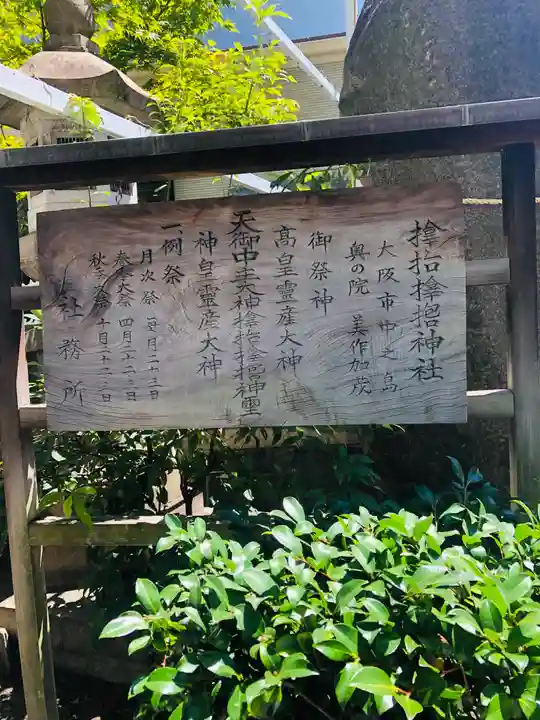 神社
大阪市中之島
奥の院 美作加茂
御祭神
高皇靈産大神
天御中主大神
神皇靈産大神
一、例祭
月次祭 毎月二十三日
春季大祭 四月二十三日
秋季大祭 十月二十二日
社務所